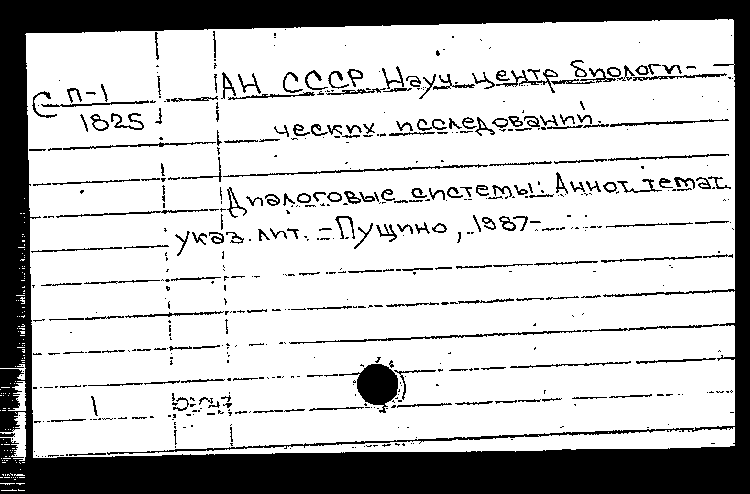 С П-1
1825
АН СССР Науч. центр биологи-
ческих исследований.
Диалоговые системы: Аннот. темат.
указ. лит. – Пущино, 1987-
1